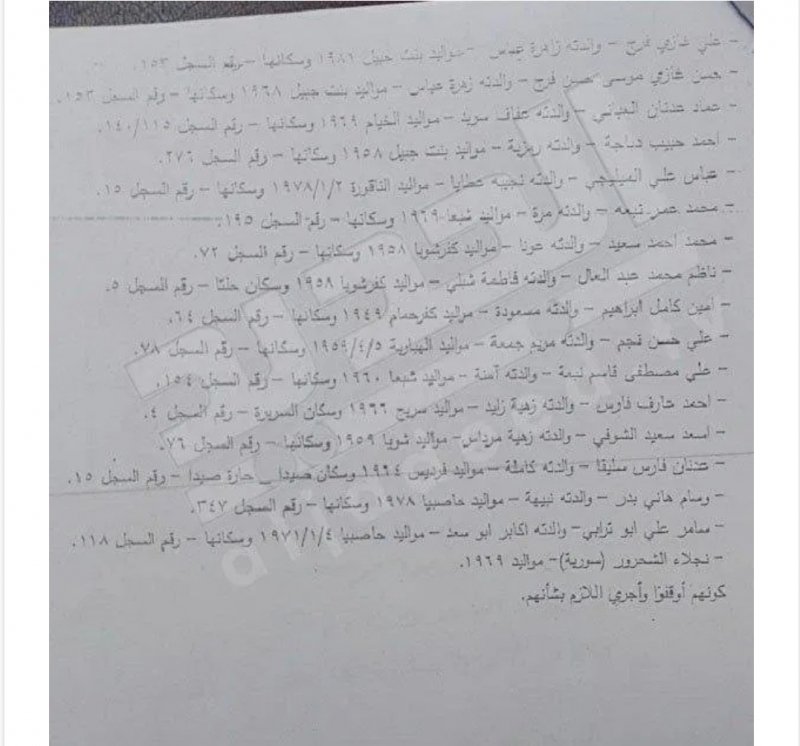 - علي غازي فرج - والدته زاهرة عباس - مواليد بنت جبيل ١٩٨١ وسكانها - رقم السجل ١٥٣.
- حسن غازي موسى حسن فرج - والدته زهرة عباس - مواليد بنت جبيل ١٩٦٨ وسكانها - رقم السجل ١٥٣.
- عماد عدنان العياني - والدته عفاف سويد - مواليد الخيام ١٩٦٩ وسكانها - رقم السجل ١٤٠/١١٥.
- احمد حبيب دباجة - والدته رمزية - مواليد بنت جبيل ١٩٥٨ وسكانها - رقم السجل ٢٧٦.
- عباس علي المليجي - والدته نجيبه عطايا - مواليد الناقورة ١٩٧٨/١/٢ وسكانها - رقم السجل ١٥.
- محمد عمر نبعه - والدته مرة - مواليد شبعا ١٩٦٩ وسكانها - رقم السجل ١٩٥.
- محمد احمد سعيد - والدته عونا - مواليد كفرشوبا ١٩٥٨ وسكانها - رقم السجل ٧٢.
- ناظم محمد عبد العال - والدته فاطمة شبلي - مواليد كفرشوبا ١٩٥٨ وسكان حلتا - رقم السجل ٥.
- امين كامل ابراهيم - والدته مسعودة - مواليد كفرحمام ١٩٤٩ وسكانها - رقم السجل ٦٤.
- علي حسن نجم - والدته مريم جمعة - مواليد الهبارية ١٩٥٩/٤/٥ وسكانها - رقم السجل ٧٨.
- علي مصطفى قاسم نبعة - والدته آمنة - مواليد شبعا ١٩٦٠ وسكانها - رقم السجل ١٥٤.
- احمد عارف فارس - والدته زهية زايد - مواليد سريح ١٩٦٦ وسكان السريرة - رقم السجل ٤.
- اسعد سعيد الشوفي - والدته زهية مرداس- مواليد شويا ١٩٥٩ وسكانها- رقم السجل ٧٦.
- عدنان فارس سليقا - والدته كاملة - مواليد فرديس ١٩٦٤ وسكان صيدا _ حارة صيدا - رقم السجل ١٥.
- وسام هاني بدر - والدته نبيهة - مواليد حاصبيا ١٩٧٨ وسكانها - رقم السجل ٣٤٧.
- سامر علي ابو ترابي- والدته اكابر ابو سعد - مواليد حاصبيا ١٩٧١/١/٤ وسكانها - رقم السجل ١١٨.
- نجلاء الشحرور (سورية)- مواليد ١٩٦٩.
كونهم أوقفوا وأجري اللازم بشأنهم.